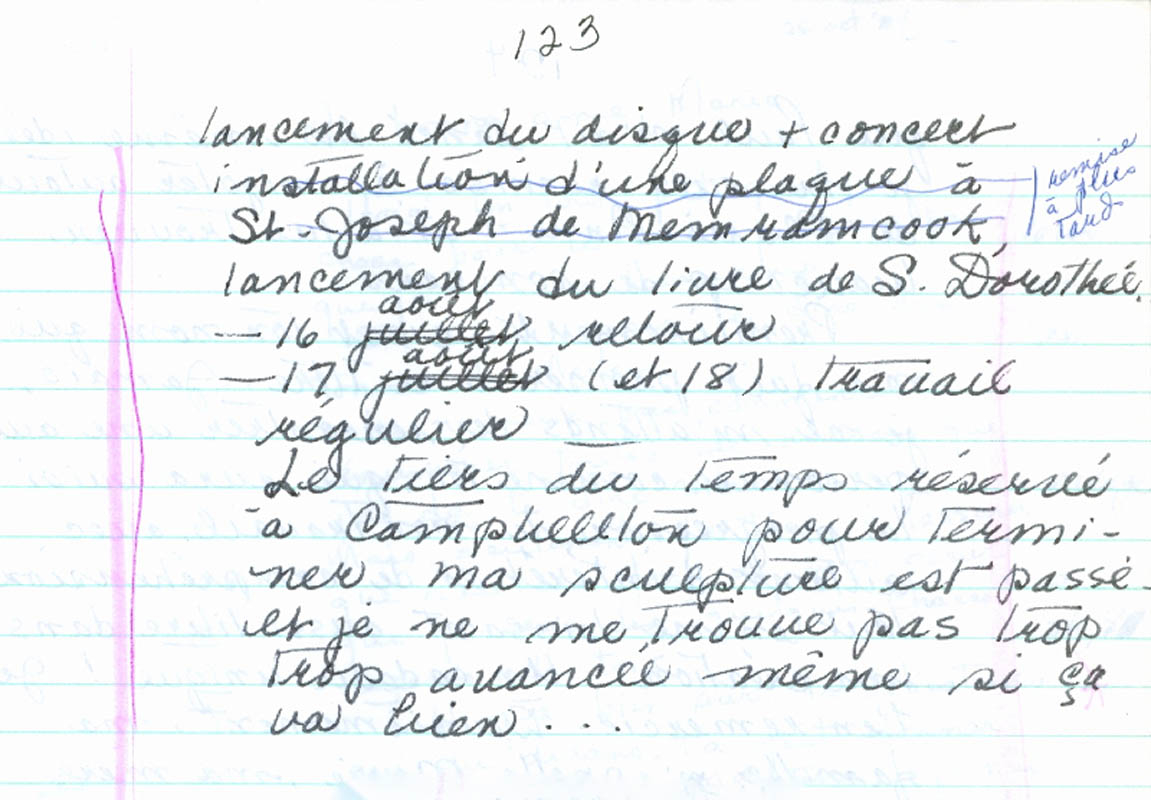 123
lancement du disque + concert
installation d'une plaque à
St-Joseph de Memramcook,
remise
à plus
tard
lancement du livre de S. Dorothée.
août
— 16 juillet retour
août
— 17 juillet (et 18) travail
régulier —
Le tiers du temps réservé
à Campbellton pour termi-
ner ma sculpture est passé
et je ne me trouve pas trop
trop avancée même si ça
va bien...